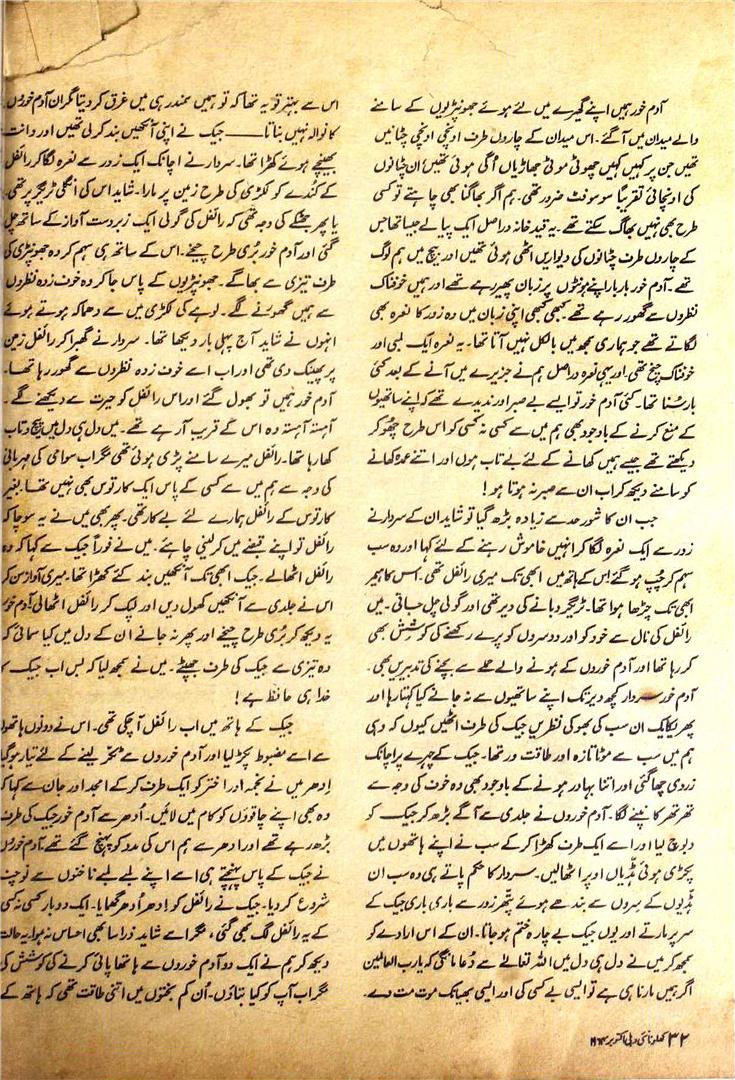 آدم خور ہمیں اپنے گھیرے میں لئے ہوئے جھونپڑیوں کے سامنے
والے میدان میں آگئے۔ اس میدان کے چاروں طرف اونچی اونچی چٹانیں
تھیں جن پر کہیں کہیں چھوٹی موٹی جھاڑیاں اُگی ہوئی تھیں، اِن چٹانوں
کی اونچائی تقریباً سو سو فٹ ضرور تھی۔ ہم اگر بھاگنا بھی چاہتے تو کسی
طرح بھی نہیں بھاگ سکتے تھے۔ یہ قید خانہ دراصل ایک پیالے جیسا تھا جس
کے چاروں طرف چٹانوں کی دیواریں اٹھی ہوئی تھیں اور بیچ میں ہم لوگ
تھے۔ آدم خور بار بار اپنے ہونٹوں پر زبان پھیر رہے تھے اور ہمیں خوفناک
نظروں سے گھور رہے تھے۔ کبھی کبھی اپنی زبان میں وہ زور کا نعرہ بھی
لگاتے تھے جو ہماری سمجھ میں بالکل نہیں آتا تھا۔ یہ نعرہ ایک لمبی اور
خوفناک چیخ تھی۔ اور یہی نعرہ دراصل ہم نے جزیرے میں آنے کے بعد کئی
بار سُنا تھا۔ کئی آدم خور تو ایسے بے صبر اور ندیدے تھے کہ اپنے ساتھیوں
کے منع کرنے کے باوجود بھی ہم میں سے کسی نہ کسی کو اس طرح چھو کر
دیکھتے تھے جیسے ہمیں کھانے کے لئے بے تاب ہوں اور اتنے عمدہ کھانے
کو سامنے دیکھ کر اب ان سے صبر نہ ہوتا ہو!
جب ان کا شور حد سے زیادہ بڑھ گیا تو شاید ان کے سردار نے
زور سے ایک نعرہ لگا کر انہیں خاموش رہنے کے لئے کہا اور وہ سب
سہم کر چُپ ہو گئے۔ اِس کے ہاتھ میں ابھی تک میری رائفل تھی۔ اس کا ہیمر
ابھی تک چڑھا ہوا تھا۔ ٹریگر دبانے کی دیر تھی اور گولی چل جاتی۔ میں
رائفل کی نال سے خود کو اور دوسروں کو پرے رکھنے کی کوشش بھی
کر رہا تھا اور آدم خوروں کے ہونے والے حملے سے بچنے کی تدبیریں بھی۔
آدم خور سردار کچھ دیر تک اپنے ساتھیوں سے نہ جانے کیا کہتا رہا اور
پھر یکایک ان سب کی بھوکی نظریں جیک کی طرف اٹھیں کیوں کہ وہی
ہم میں سب سے موٹا تازہ اور طاقت ور تھا۔ جیک کے چہرے پر اچانک
زردی چھا گئی اور اتنا بہادر ہونے کے باوجود بھی وہ خوف کی وجہ سے
تھر تھر کانپنے لگا۔ آدم خوروں نے جلدی سے آگے بڑھ کر جیک کو
دبوچ لیا اور اسے ایک طرف کھڑا کر کے سب نے اپنے ہاتھوں میں
پکڑی ہوئی ہڈیاں اوپر اٹھالیں۔ سردار کا حکم پاتے ہی وہ سب ان
ہڈیوں کے سِروں سے بندھے ہوئے پتھر زور سے باری باری جیک کے
سر پر مارتے اور یوں جیک بے چارہ ختم ہو جاتا۔ ان کے اس ارادے کو
سمجھ کر میں نے دل ہی دل میں اللہ تعالےٰ سے دُعا مانگی کہ یارب العالمین
اگر ہمیں مارنا ہی ہے تو ایسی بے کسی کی اور ایسی بھیانک موت مت دے۔
اس سے بہتر تو یہ تھا کہ تو ہمیں سمندر ہی میں غرق کر دیتا مگر ان آدم خوروں
کا نوالہ نہیں بناتا۔ —— جیک نے اپنی آنکھیں بند کر لی تھیں اور دانت
بھینچے ہوئے کھڑا تھا۔ سردار نے اچانک ایک زور سے نعرہ لگا کر رائفل
کے کُندے کو لکڑی کی طرح زمین پر مارا۔ شاید اس کی انگلی ٹریگر پر تھی۔
یا پھر جھٹکے کی وجہ تھی کہ رائفل کی گولی ایک زبردست آواز کے ساتھ چل
گئی اور آدم خور بُری طرح چیخے۔ اس کے ساتھ ہی سہم کر وہ جھونپڑی کی
طرف تیزی سے بھاگے۔ جھونپڑیوں کے پاس جا کر وہ خوف زدہ نظروں
سے ہمیں گھورنے لگے۔ لوہے کی لکڑی میں سے دھماکہ ہوتے ہوئے
انہوں نے شاید آج پہلی بار دیکھا تھا۔ سردار نے گھبرا کر رائفل زمین
پر پھینک دی تھی اور اب اسے خوف زدہ نظروں سے گھور رہا تھا۔
آدم خور ہمیں تو بھول گئے اور اس رائفل کو حیرت سے دیکھنے لگے۔
آہستہ آہستہ وہ اس کے قریب آرہے تھے۔ میں دل ہی دل میں پیچ و تاب
کھا رہا تھا۔ رائفل میرے سامنے پڑی ہوئی تھی مگر اب سوامی کی مہربانی
کی وجہ سے ہم میں سے کسی کے پاس ایک کارتوس بھی نہیں تھا۔ بغیر
کارتوس کے رائفل ہمارے لئے بے کار تھی۔ پھر بھی میں نے یہ سوچا کہ
رائفل تو اپنے قبضے میں کر لینی چاہئے۔ میں نے فوراً جیک سے کہا کہ وہ
رائفل اٹھالے۔ جیک ابھی تک آنکھیں بند کئے کھڑا تھا۔ میری آواز سن کر
اس نے جلدی سے آنکھیں کھول دیں اور لپک کر رائفل اٹھالی۔ آدم خور
یہ دیکھ کر بُری طرح چیخے اور پھر نہ جانے ان کے دل میں کیا سمائی کہ
وہ تیزی سے جیک کی طرف جھپٹے۔ میں نے سمجھ لیا کہ بس اب جیک کا
خدا ہی حافظ ہے!
جیک کے ہاتھ میں اب رائفل آچکی تھی۔ اس نے دونوں ہاتھوں
سے اسے مضبوط پکڑ لیا اور آدم خوروں سے ٹکر لینے کے لئے تیار ہو گیا
اِدھر میں نے نجمہ اور اختر کو ایک طرف کر کے امجد اور جان سے کہا کہ
وہ بھی اپنے چاقوؤں کو کام میں لائیں۔ اُدھر سے آدم خور جیک کی طرف
بڑھ رہے تھے اور ادھر سے ہم اس کی مدد کو پہنچ گئے تھے۔ آدم خوروں
نے جیک کے پاس پہنچتے ہی اسے اپنے لمبے لمبے ناخنوں سے نوچنا
شروع کر دیا۔ جیک نے رائفل کو اِدھر اُدھر گھمایا۔ ایک دو بار کسی نہ کسی
کے یہ رائفل لگ بھی گئی، مگر اسے شاید ذرا سا بھی احساس نہ ہوا۔ یہ حالت
دیکھ کر ہم نے ایک دو آدم خوروں سے ہاتھا پائی کرنے کی کوشش کی
مگر اب آپ کو کیا بتاؤں۔ اُن کم بختوں میں اتنی طاقت تھی کہ ہاتھ کے
۳۲ کھلونا نئی دہلی اکتوبر